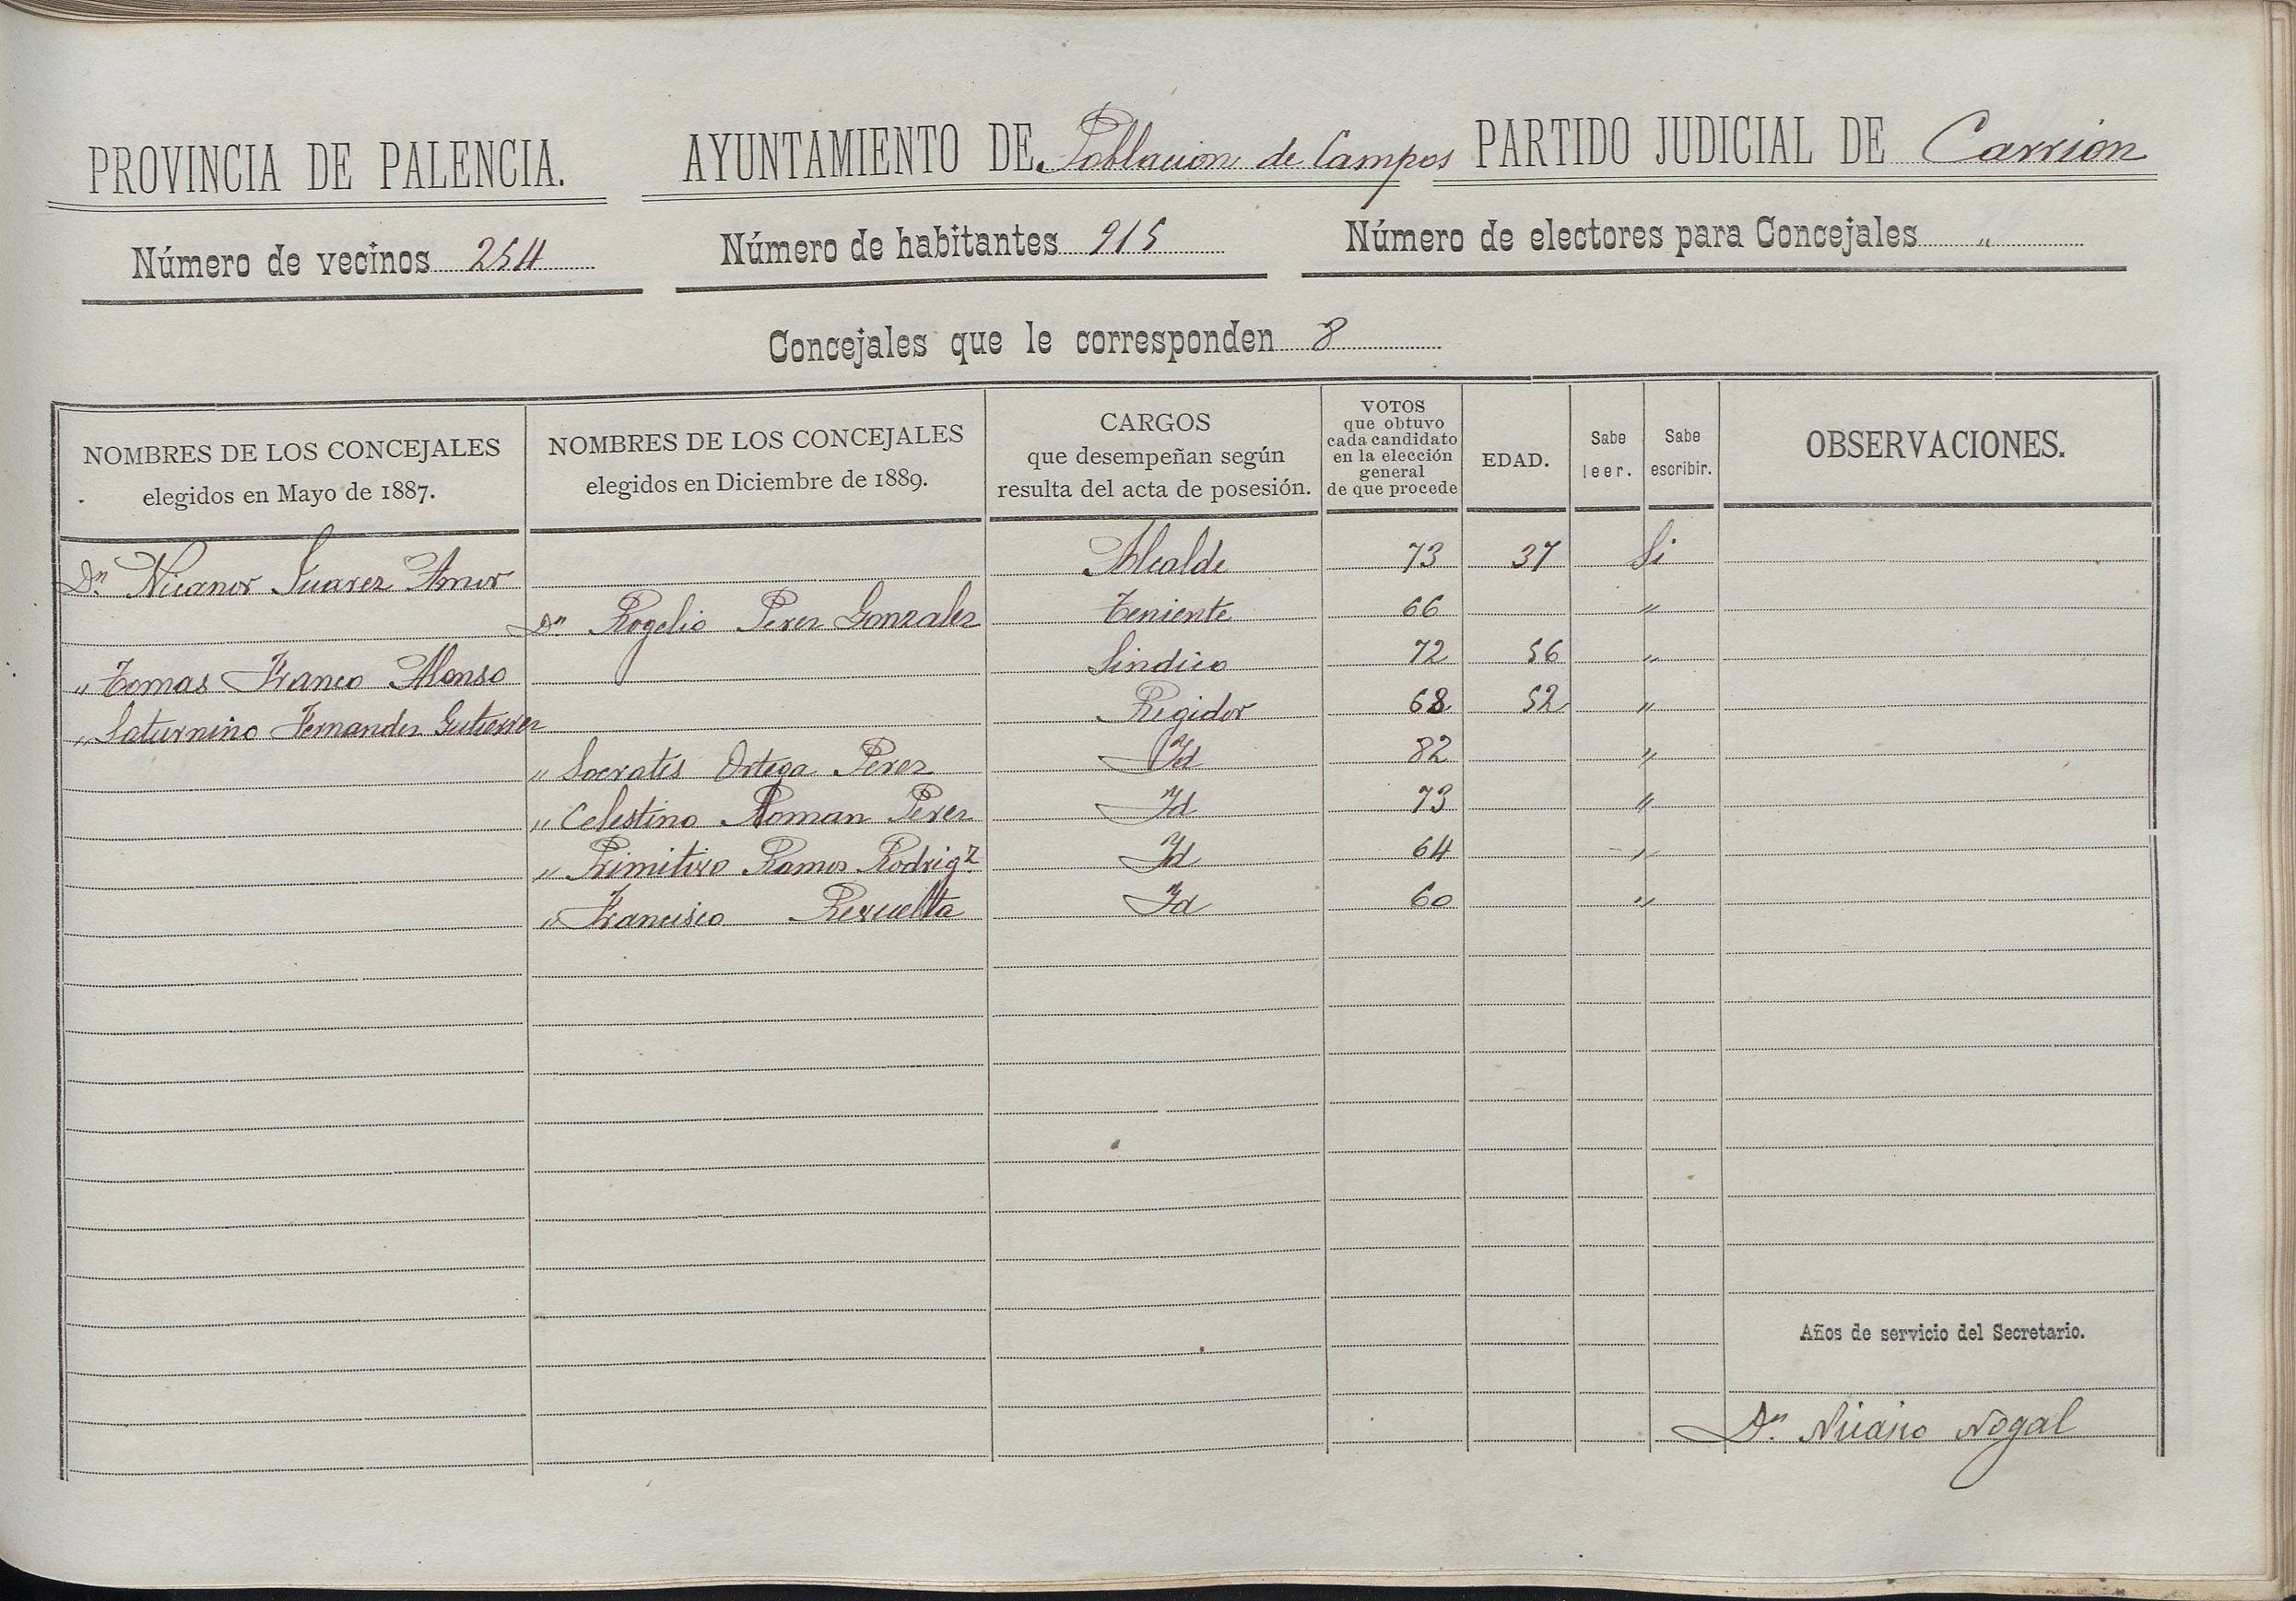 PROVINCIA DE PALENCIA. AYUNTAMIENTO DE Poblacion de Campos PARTIDO JUDICIAL DE Carrion
Número de vecinos 254 Número de habitantes 915 Número de electores para Concejales "
Concejales que le corresponden 8
NOMBRES DE LOS CONCEJALES
elegidos en Mayo de 1887.
NOMBRES DE LOS CONCEJALES
elegidos en Diciembre de 1889.
CARGOS
que desempeñan según
resulta del acta de posesión.
VOTOS
que obtuvo
cada candidato
en la elección
general
de que procede
EDAD.
Sabe
leer.
Sabe
escribir.
OBSERVACIONES.
Dn. Nicanor Suarez Amor Alcalde 73 37 Si
Dn. Rogelio Perez Gonzalez Teniente 66 "
" Tomas Franco Alonso Sindico 72 56 "
" Saturnino Fernandez Gutierrez Regidor 68 52 "
" Socrates Ortega Perez Id 82 "
" Celestino Roman Perez Id 73 "
" Primitivo Ramos Rodrigz. Id 64 "
" Francisco Revuelta Id 60 "
Años de servicio del Secretario.
Dn. Nogal